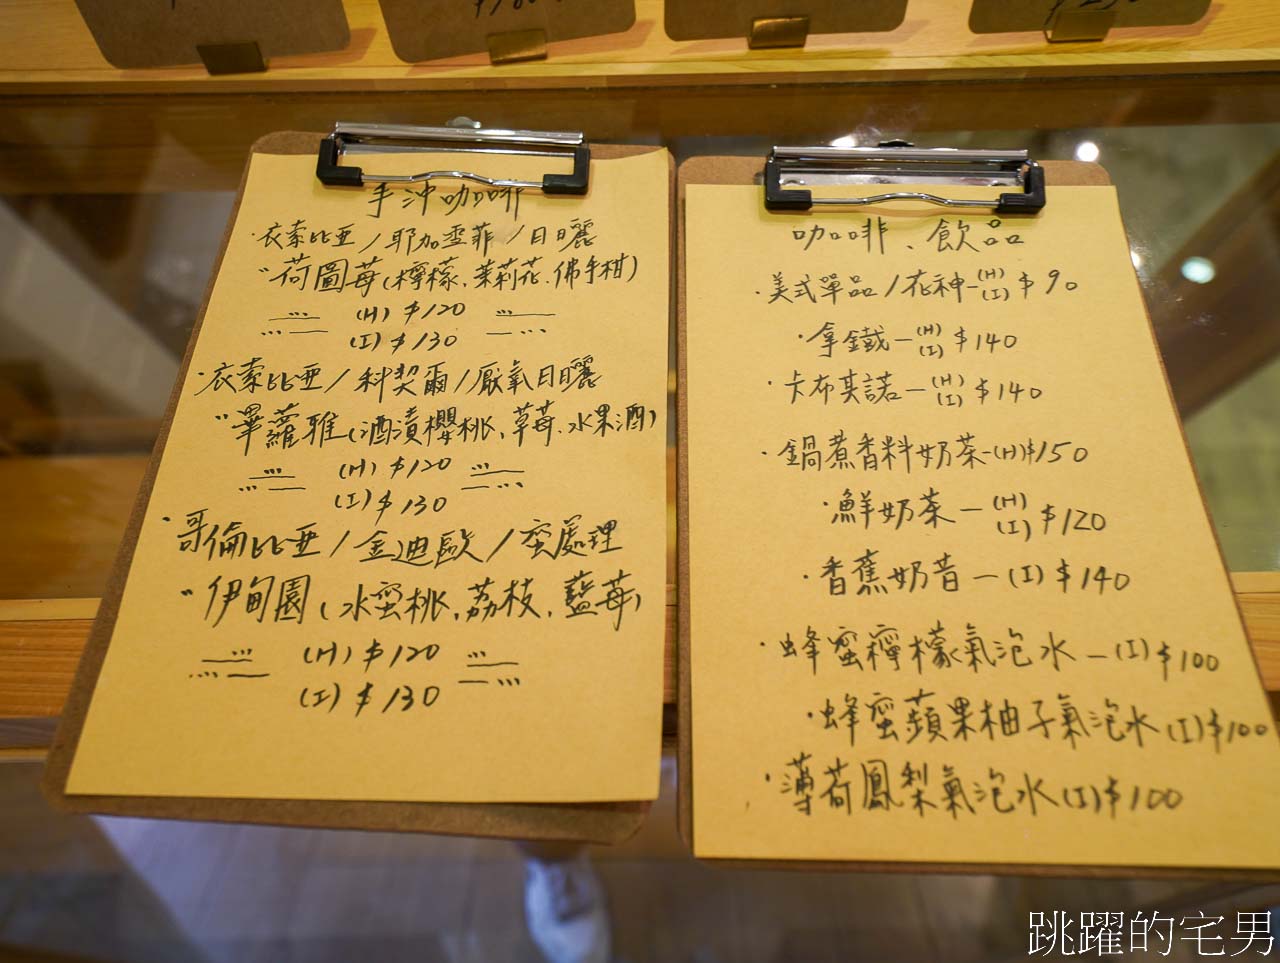 手沖咖啡
·衣索比亞/耶加雪菲/日曬
"荷圖莓(檸檬.茉莉花.佛手柑)
(H) $120
(I) $130
·衣索比亞/科契爾/厭氧日曬
"畢蘿雅(酒漬櫻桃.草莓.水果酒)
(H) $120
(I) $130
·哥倫比亞/金迪歐/蜜處理
"伊甸園(水蜜桃.荔枝.藍莓)
(H) $120
(I) $130
咖啡、飲品
·美式單品/花神-(H)(I) $90
·拿鐵-(H)(I) $140
·卡布其諾-(H)(I) $140
·鍋煮香料奶茶-(H)$150
·鮮奶茶-(H)(I) $120
·香蕉奶昔-(I) $140
·蜂蜜檸檬氣泡水-(I)$100
·蜂蜜蘋果柚子氣泡水(I)$100
·薄荷鳳梨氣泡水(I)$100
跳躍的宅男